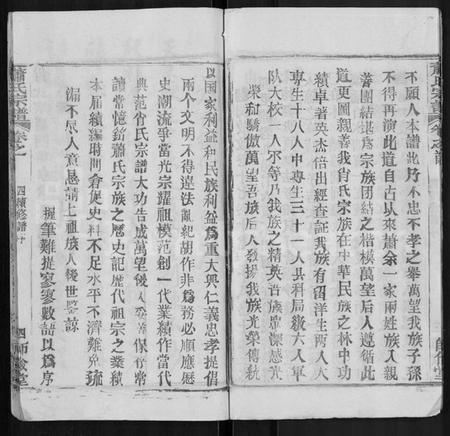 不願人本譜此乃不忠不孝之舉萬望我族子孫
不得再演此道自古以來蕭余一家兩姓族人親
善團結堪為宗族團結之楷模萬望后人遵循此
道更圖親善我肖氏宗族在中華民族之林中功
績卓著英杰倍出經查証我族有留洋生兩人大
專生十八人中專生三十一人縣科局級六人軍
隊大校一人不等乃我族之精英吾族群深感光
榮和驕傲萬望吾族后人發揚我族光榮傳統
以國家利益和民族利益為重大興仁義忠孝提倡
兩个文明不得違法亂紀胡作非為務必順應歷
史潮流爭當光宗耀祖模范創一代業績作當代
典范肖氏宗譜大功告成萬望後人妥善保存常
讀常憶銘蕭氏宗族之歷史記歷代祖宗之業績
本屆續編時間倉促史料不足水平不濟難免疏
漏不尽人意懇請上祖族人後世鑒諒
握筆難提寥寥数語以為序
蕭氏宗譜
卷之一
四續修譜序